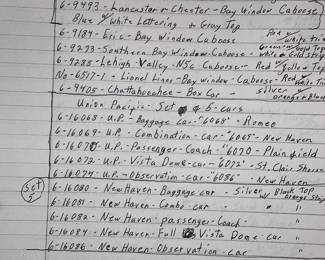 6-9493- Lancaster & Chester-Bay Window Caboose
Blue w/White Lettering & Gray Top
6-9184- Erie-Bay Window Caboose - Red w/ White trim
6-9273-Southern Bay Window Caboose- Green w/ Gold Top white & Gold Stripe
6-9288-Lehigh Valley-N5c Caboose- Red w/ Yellow Top
No-6517-1- Lionel Lines-Bay window-Caboose-Red w/ White
6-9405-Chattahoochee-Box car- Silver w/ orange & Black
Union Pacific-Set 5-cars
6-16068-U.P.-Baggage car-"6068"-Romeo
6-16069-U.P.-Combination-car-"6069"-New Haven
6-16070-U.P.-Passenger-Coach-"6070-Plainfield
6-16072-U.P.-Vista Dome-car-"6072"-St. Clair Shores
6-16074-U.P.-Observation-car-"6086"-New Haven
Set 5
6-16080-New Haven-Baggage car-Silver w/ Black Top orange stripe
6-16081-New Haven-Combo car " "
6-16082-New Haven-passenger-Coach "
6-16084-New Haven-Full Vista Dome-car "
6-16086-New Haven-Observation-car "